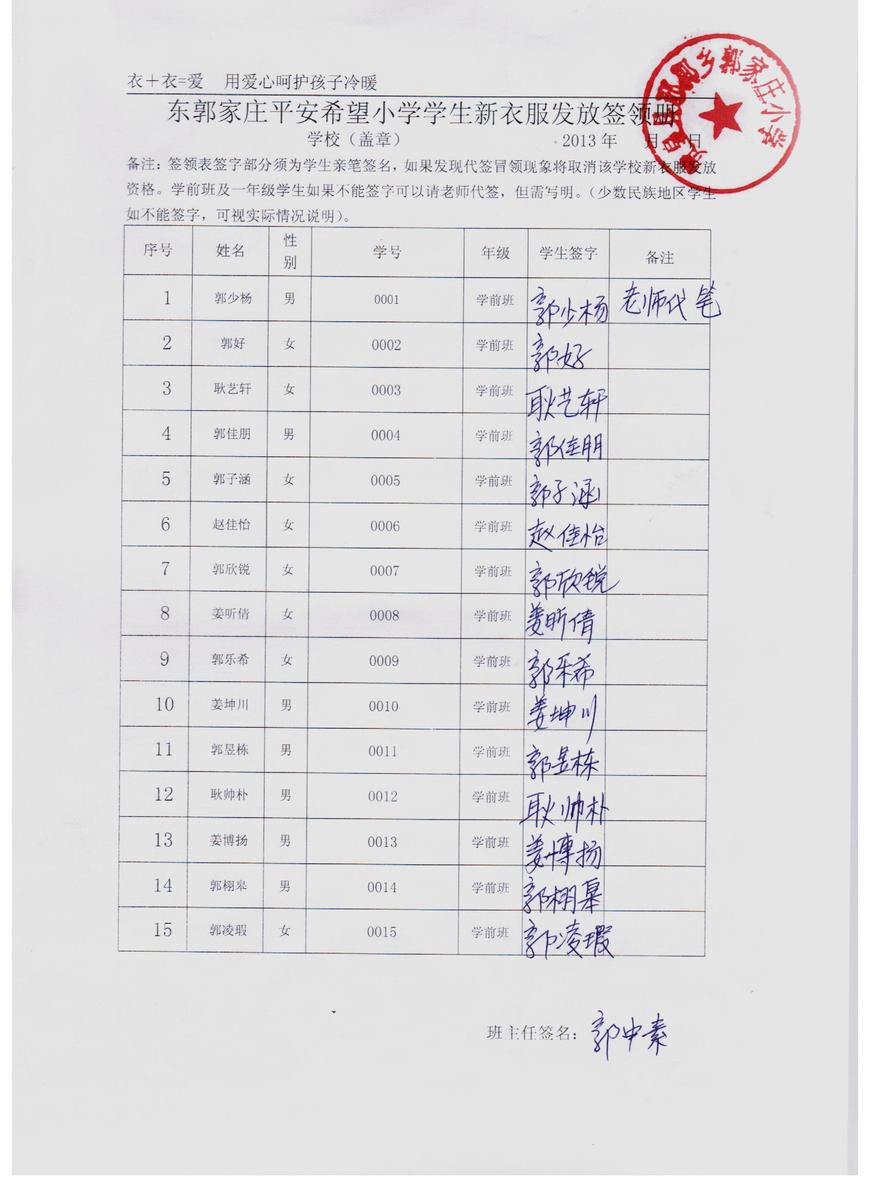 衣+衣=爱 用爱心呵护孩子冷暖
东郭家庄平安希望小学学生新衣服发放签领册
学校（盖章） 2013 年 月 日
备注：签领表签字部分须为学生亲笔签名，如果发现代签冒领现象将取消该学校新衣服发放
资格。学前班及一年级学生如果不能签字可以请老师代签，但需写明。（少数民族地区学生
如不能签字，可视实际情况说明）。
序号 姓名 性别 学号 年级 学生签字 备注
1 郭少杨 男 0001 学前班 郭少杨 老师代笔
2 郭好 女 0002 学前班 郭好
3 耿艺轩 女 0003 学前班 耿艺轩
4 郭佳朋 男 0004 学前班 郭佳朋
5 郭子涵 女 0005 学前班 郭子涵
6 赵佳怡 女 0006 学前班 赵佳怡
7 郭欣锐 女 0007 学前班 郭欣锐
8 姜昕倩 女 0008 学前班 姜昕倩
9 郭乐希 女 0009 学前班 郭乐希
10 姜坤川 男 0010 学前班 姜坤川
11 郭昱栋 男 0011 学前班 郭昱栋
12 耿帅朴 男 0012 学前班 耿帅朴
13 姜博扬 男 0013 学前班 姜博扬
14 郭栩皋 男 0014 学前班 郭栩皋
15 郭凌瑕 女 0015 学前班 郭凌瑕
班主任签名：郭中素
乡郭家庄小学